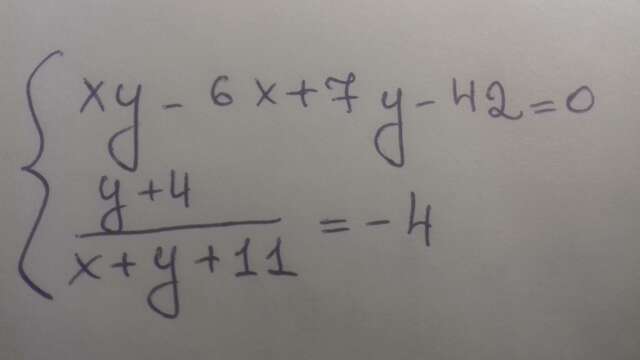 xy - 6x + 7y - 42 = 0
y + 4
x + y + 11 = - 4